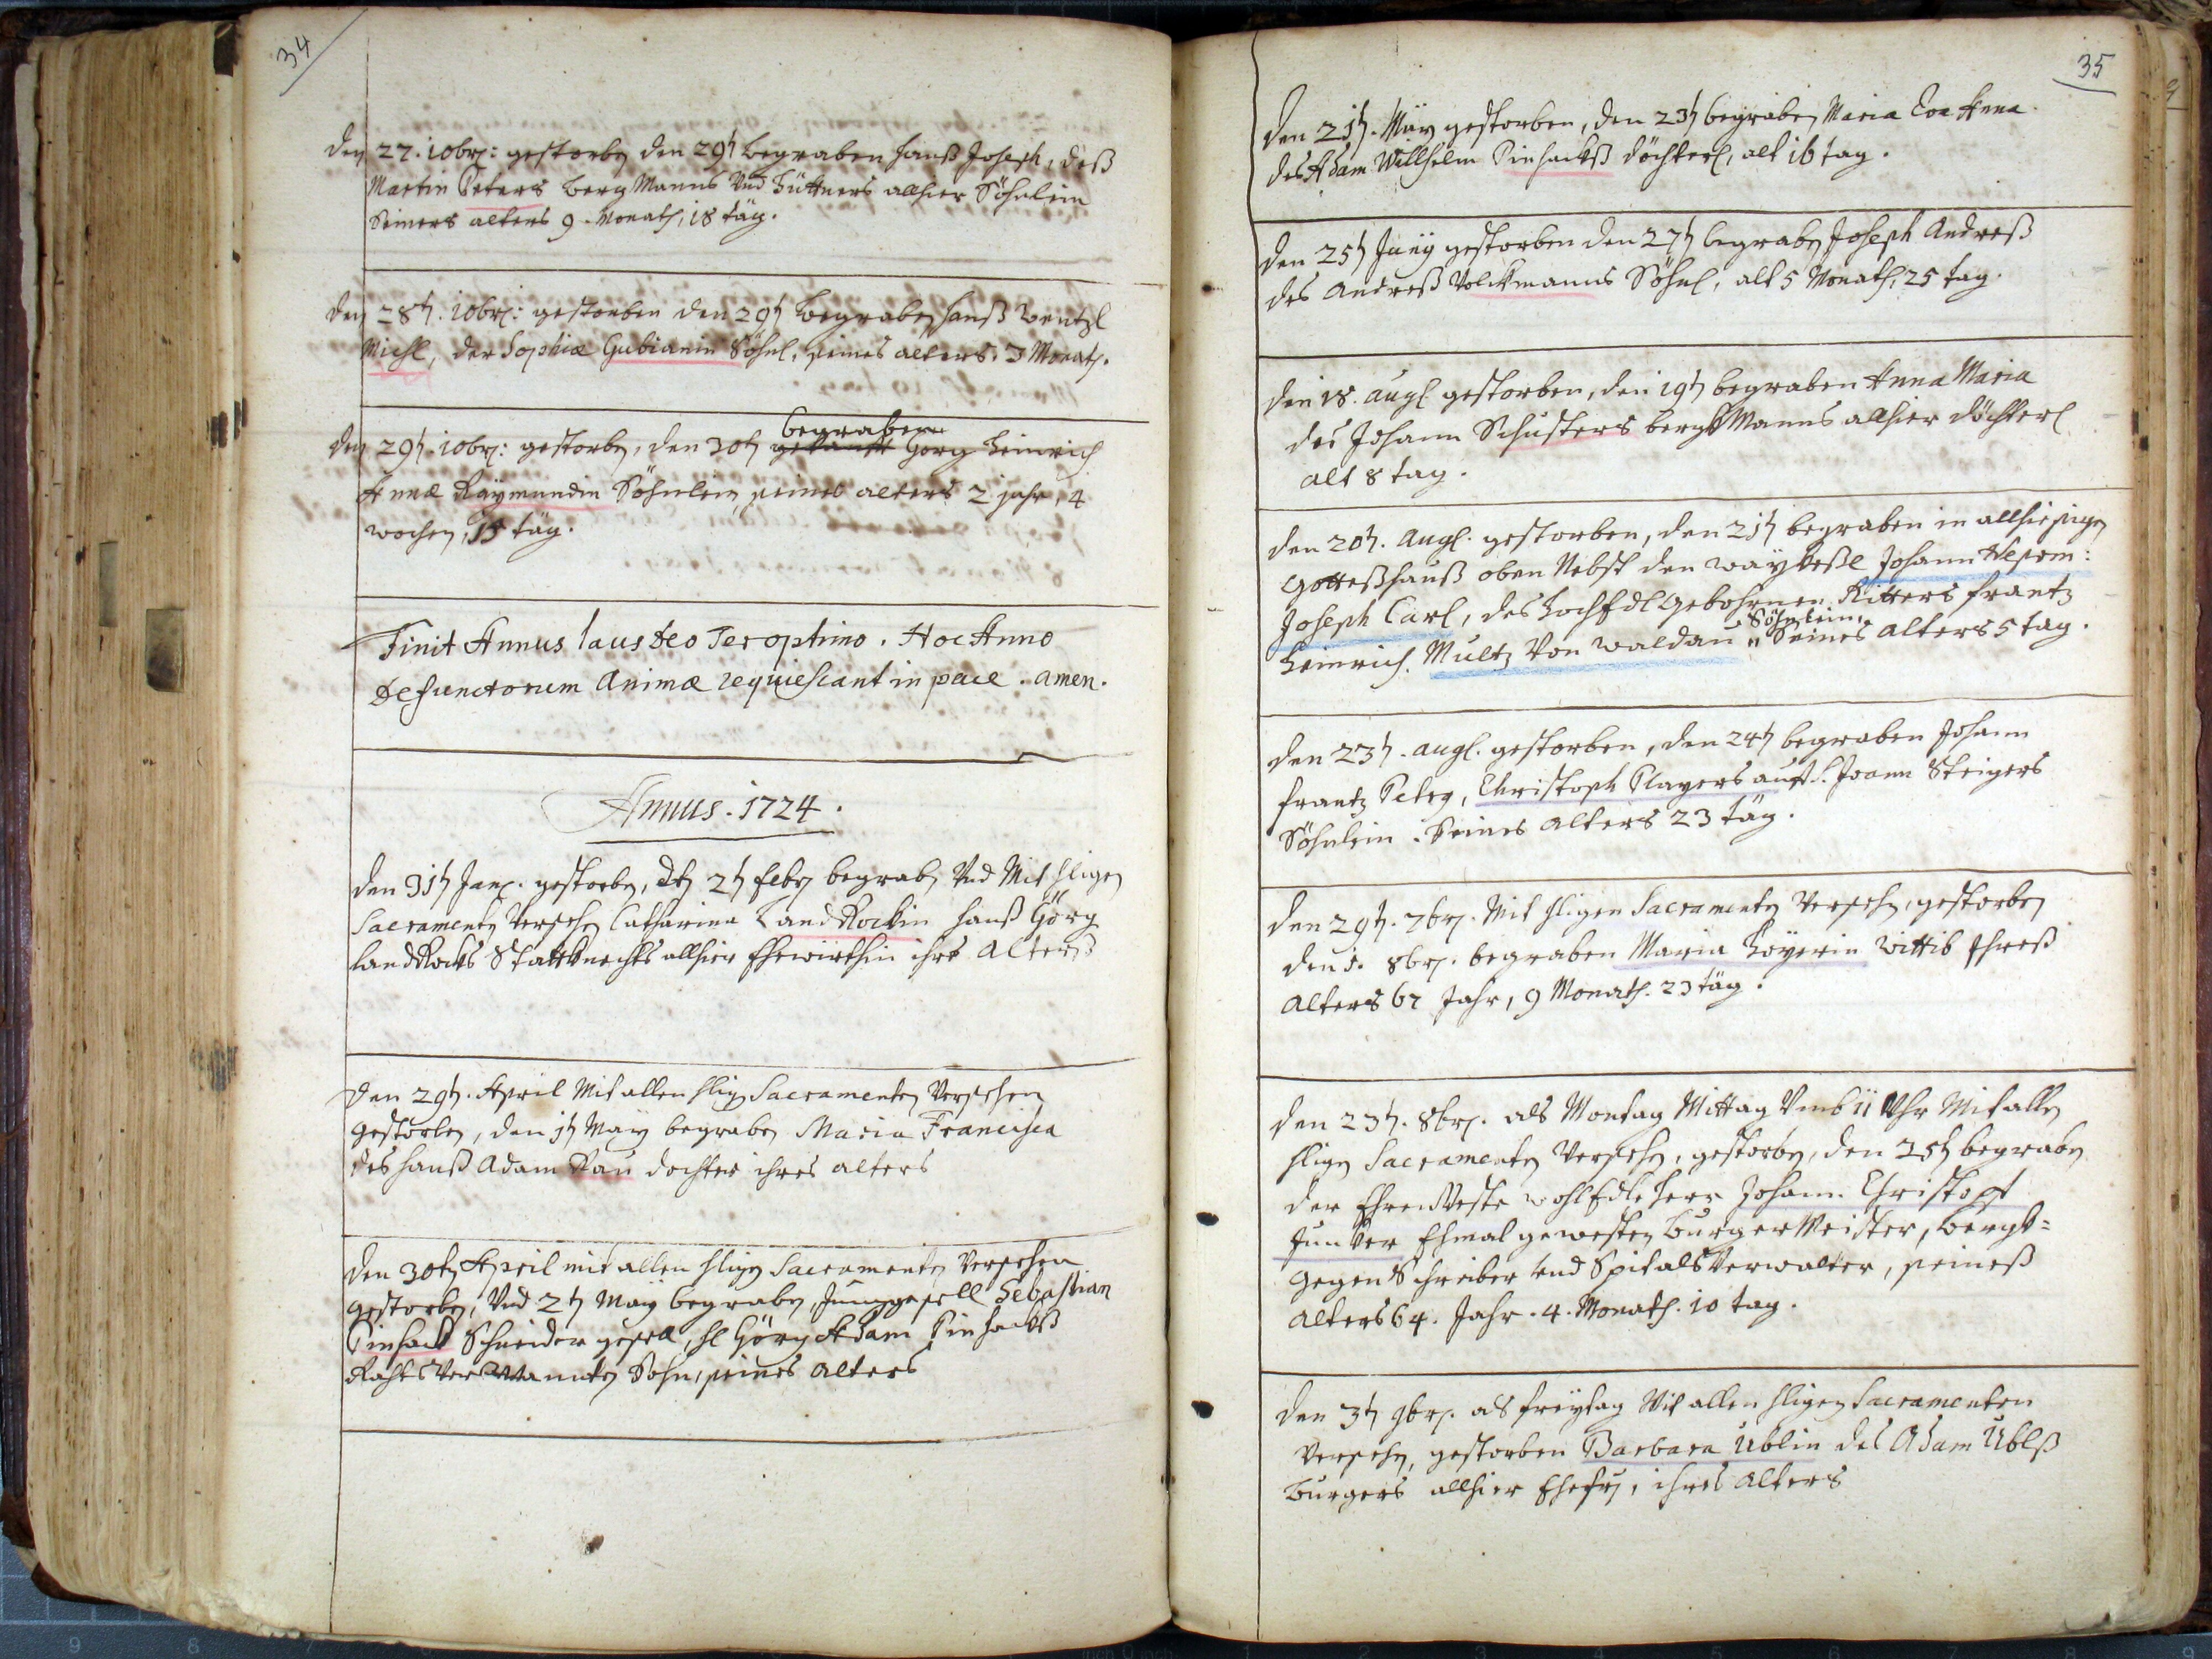 34
den 27. 10br: gestorben den 29t begraben Hanß Joseph, deß
Martin Peters BergManns Vnd Hüttners allhier Söhnlein
Seiners alters 9. Monath, 18 täg.
den 28t. 10br: gestorben den 29t begraben Hanß Wentzl
Michl, der Sophiæ Gubianin Söhnl, seines alters. 3 Monath.
begraben
den 29t. 10br: gestorben, den 30t getaufft Gorg Heinrich
Annæ Raymundin Söhnlein, seines alters 2 jahr, 4
wochen, 15 täg.
Finit Annus laus Deo Ter optimo. Hoc Anno
Defunctorum Animæ requiescant in pace. amen.
Annus. 1724.
den 31t Jan. gestorben, den 2t febr begrab, Vnd Mit hligen
Sacramenten Versehen Catharina LandRockin Hanß Görg
LandRocks Stattknechts allhier Ehewirthin ihrs Alterß
den 29t. April Mit allen hlign Sacramenten Versehen
gestorben, den 1t May begraben Maria Francisca
des Hanß Adam Rau dochter ihres alters
den 30t April mit allen hlign Sacramenten Versehen
gestorben, Vnd 2t May begraben, Junggesell Sebastian
Pinhack Schneider gesell, hl Görg Adam Pinhackß
RahtsVerWandten Sohn, seines alters
35
den 21t. May gestorben, den 23t begraben Maria Eva Anna
des Adam Willhelm Pinhackß döchterl, alt 16 tag.
den 25t Juny gestorben den 27t begraben Joseph Andreß
des Andreß Volckmanns Söhnl, alt 5 Monath, 25 tag.
den 18. augl gestorben, den 19t begraben Anna Maria
des Johann Schusters bergkManns allhier döchterl
alt 8 tag.
den 20t. Augl. gestorben, den 21t begraben in allhiesigen
Gotteßhauß oben Nebst den Waykeßl Johann Nepom:
Joseph Carl, des HochEdl Gebohrnen Ritters Frantz
Söhnlein,
Heinrich Multz Von Waldau " Seines Alters 5 tag.
den 23t. augl. gestorben, den 24t begraben Johann
Frantz Peter, Christoph Players auf St. Joann Steigers
Söhnlein. Seines Alters 23 täg.
den 29t. 7br. Mit hligen Sacramenten Versehen, gestorben
den 1. 8br. begraben Maria Höyerin Wittib Ihreß
Alters 67 Jahr, 9 Monath. 23 täg.
den 23t. 8br. als Montag Mittag Vmb 11 Vhr Mit allen
hlign Sacramenten Versehen, gestorben, den 25t begraben
der EhrenVeste wohlEdle Herr Johann Christoph
Juncker Ehmal gewesten BurgerMeister, Bergk=
gegenSchreiber und SpitalsVerwalter, seineß
Alters 64. Jahr. 4. Monath. 10 tag.
den 3t 9br. als freytag Mit allen hligen Sacramenten
Versehen, gestorben Barbara Ublin des Adam Ublß
burgers allhier Ehefr, ihres Alters